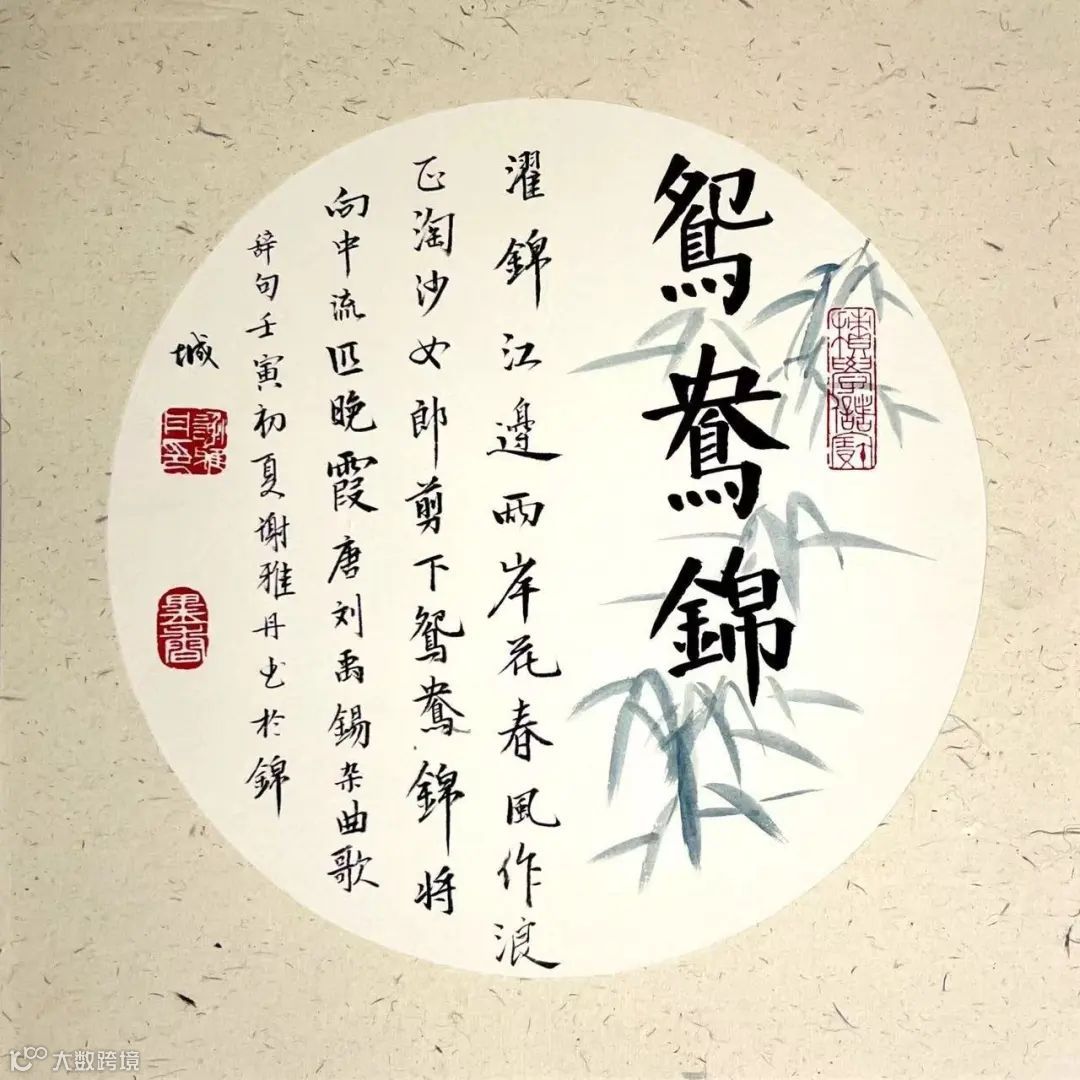 鴛鴦錦
濯錦江邊兩岸花春風作浪
正淘沙女郎剪下鴛鴦錦將
向中流匹晚霞唐刘禹錫杂曲歌
辞句壬寅初夏谢雅丹书於錦
城
謝雅丹印
墨香
大数跨境